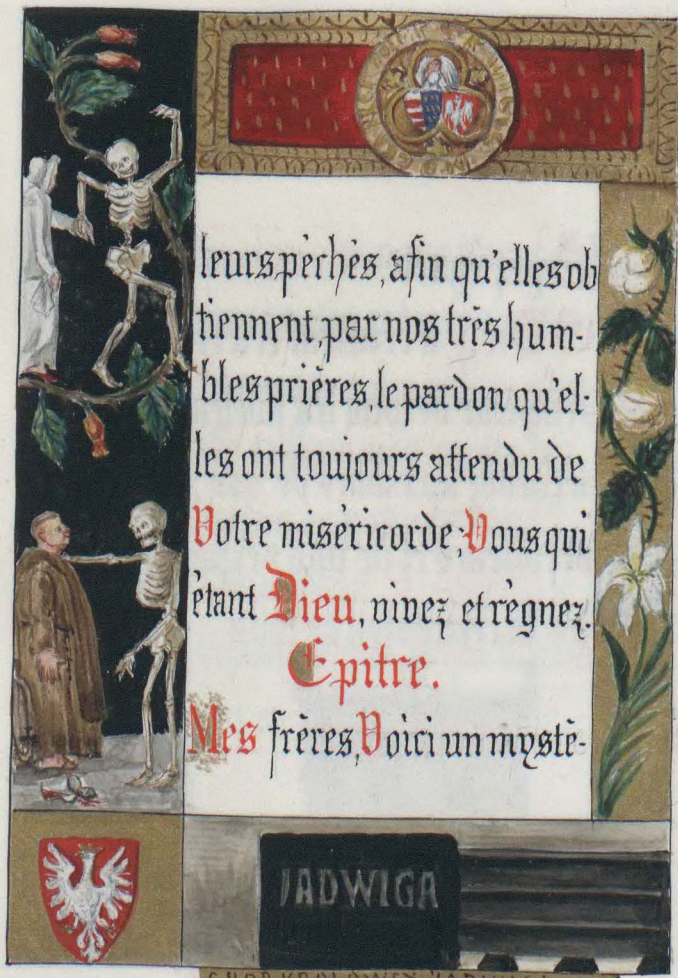 leurs pèchès, afin qu'elles ob
tiennent, par nos très hum-
bles prières, le pardon qu'el-
les ont toujours attendu de
Votre misèricorde; Vous qui
ètant Dieu, vivez et règnez.
Epitre.
Mes frères, Voici un mystè-
JADWIGA